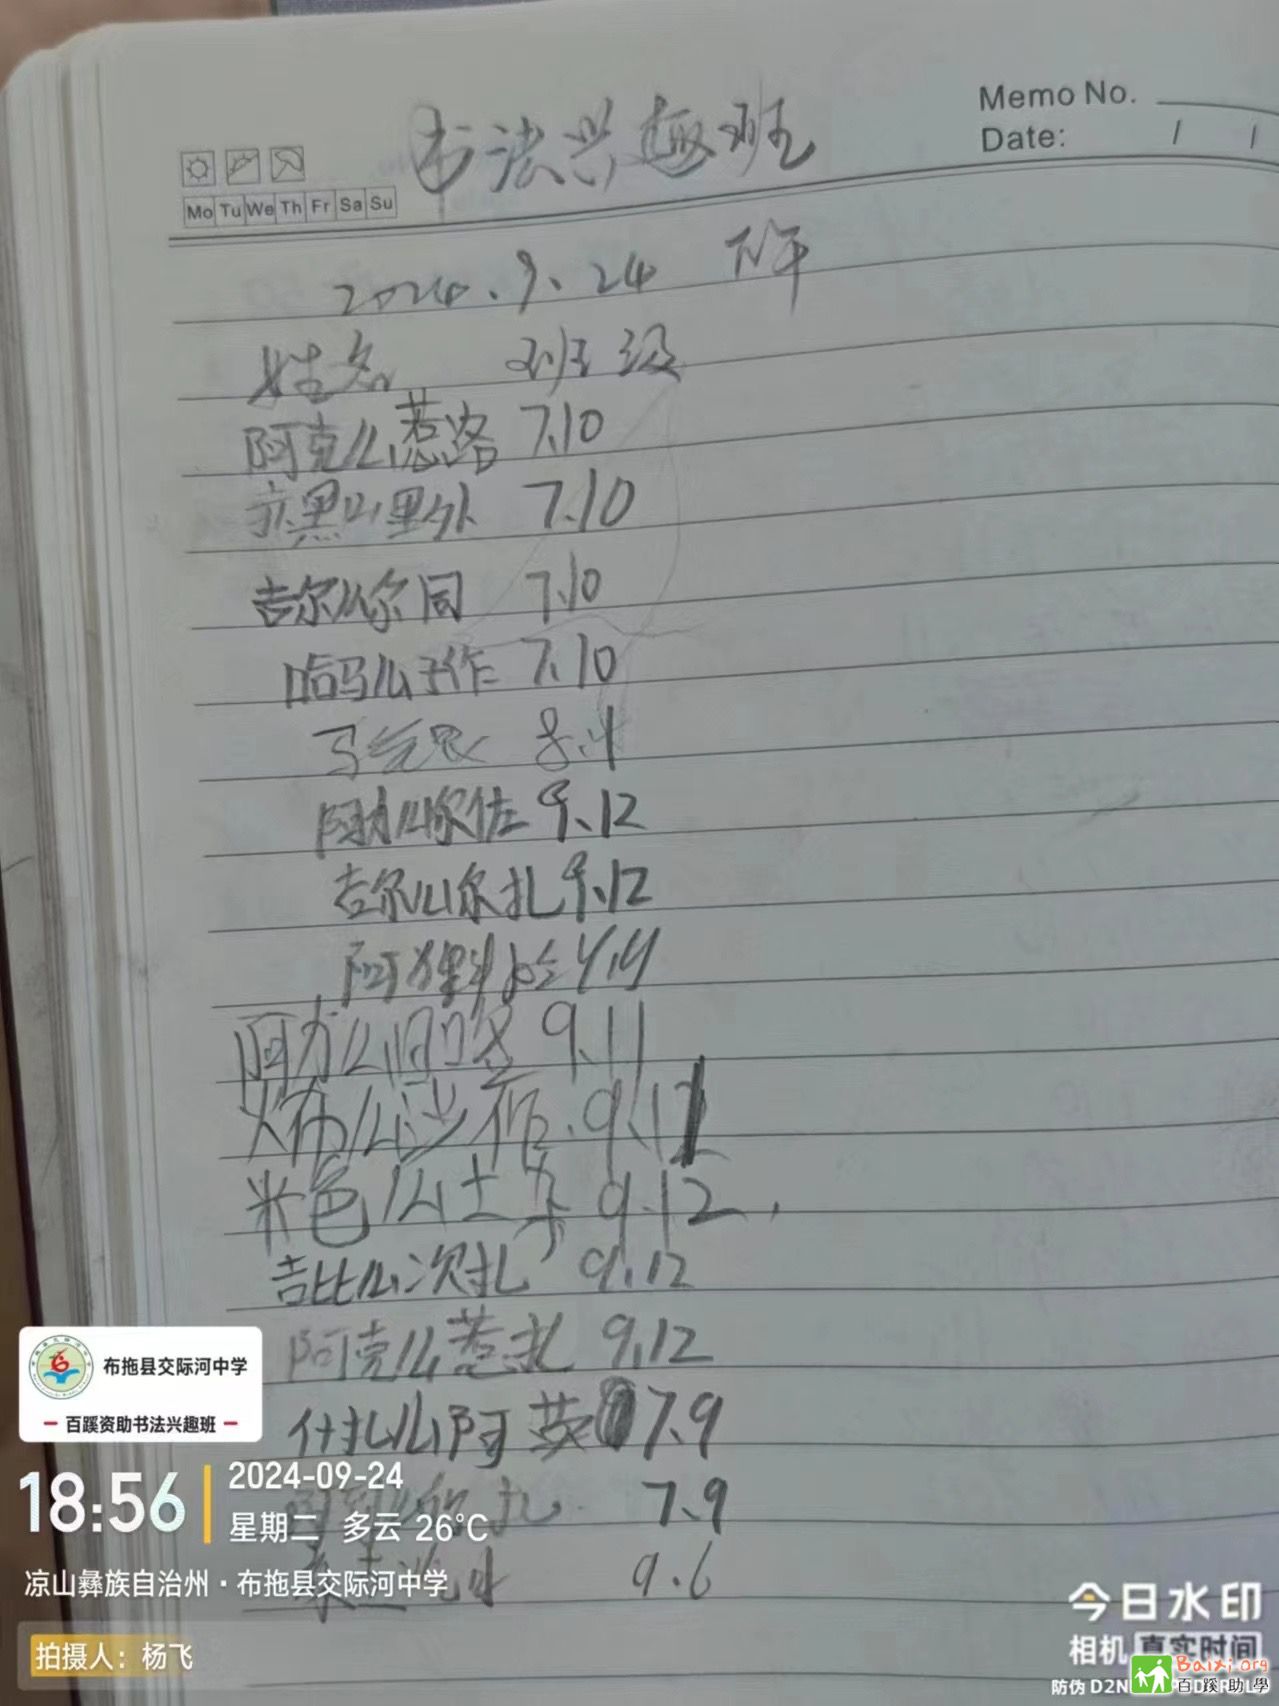 书法兴趣班
Memo No.
Date: / /
Mo Tu We Th Fr Sa Su
2024.9.24 下午
姓名 班级
阿克么惹洛 7.10
黑么里外 7.10
吉尔么尔同 7.10
哈马么子作 7.10
马 8.4
阿力么尔佐 9.12
吉尔么尔扎 9.12
阿
阿力么日 9.11
火布么 9.12
米色么土 9.12
吉比么次扎 9.12
阿克么惹扎 9.12
什扎么阿英 7.9
扎 7.9
9.6
布拖县交际河中学
百蹊资助书法兴趣班
18:56
2024-09-24
星期二 多云 26°C
凉山彝族自治州·布拖县交际河中学
拍摄人：杨飞
今日水印
相机 真实时间
防伪 D2N
Baixi.org
百蹊助學